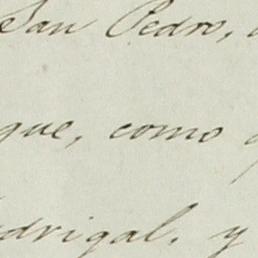 San Pedro,
que, como
drigal, y